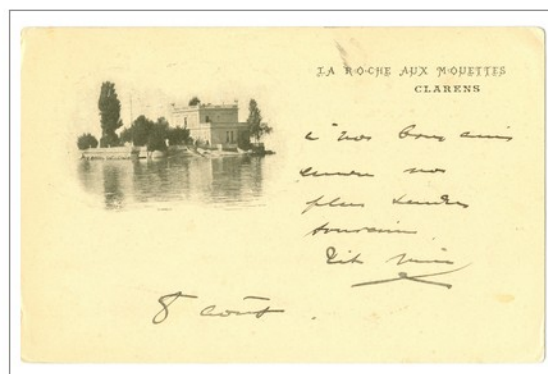 LA ROCHE AUX MOUETTES
CLARENS
à nos bons amis
nos
plus tendres
8 août.